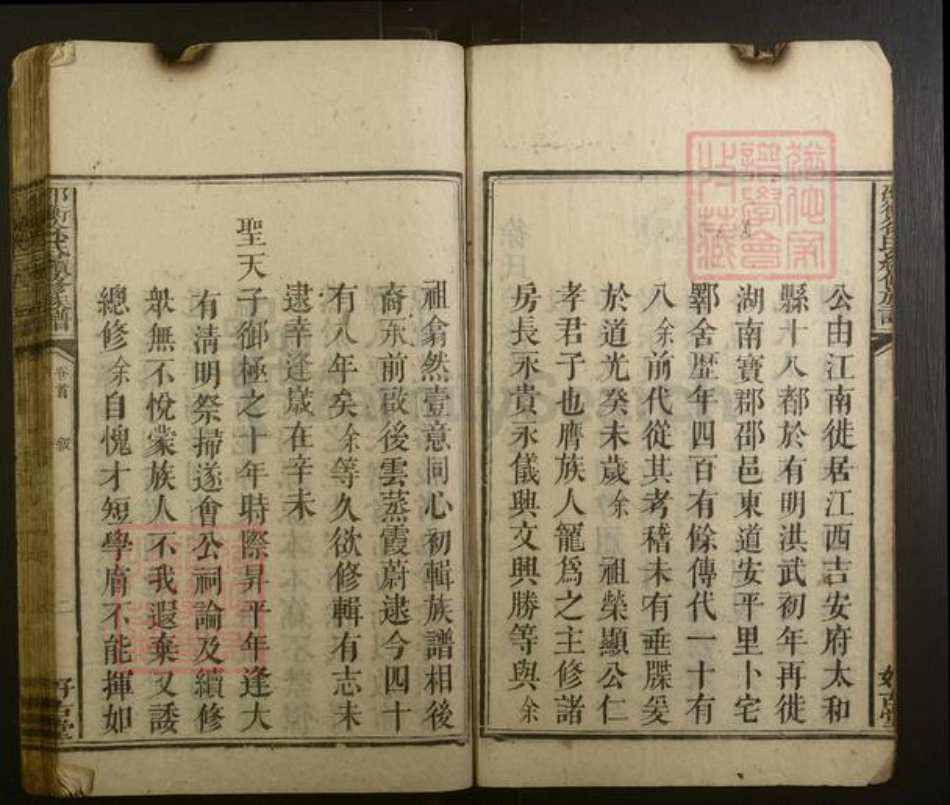 公由江南徙居江西吉安府太和
縣十八都於有明洪武初年再徙
湖南寶郡邵邑東道安平里卜宅
鄴舍歷年四百有餘傳代一十有
八余前代從其考稽未有垂牒爰
於道光癸未歲余 祖榮顯公仁
孝君子也膺族人寵為之主修諸
房長永貴永儀興文興勝等與余
祖翕然壹意同心初輯族譜相後
裔承前啟後雲蒸霞蔚逮今四十
有八年矣余等久欲修輯有志未
逮幸逢歲在辛未
聖天子御極之十年時際昇平年逢大
有清明祭掃遂會公祠論及續修
眾無不悅蒙族人不我遐棄又諉
總修余自愧才短學膚不能揮如
卷首 敘
二